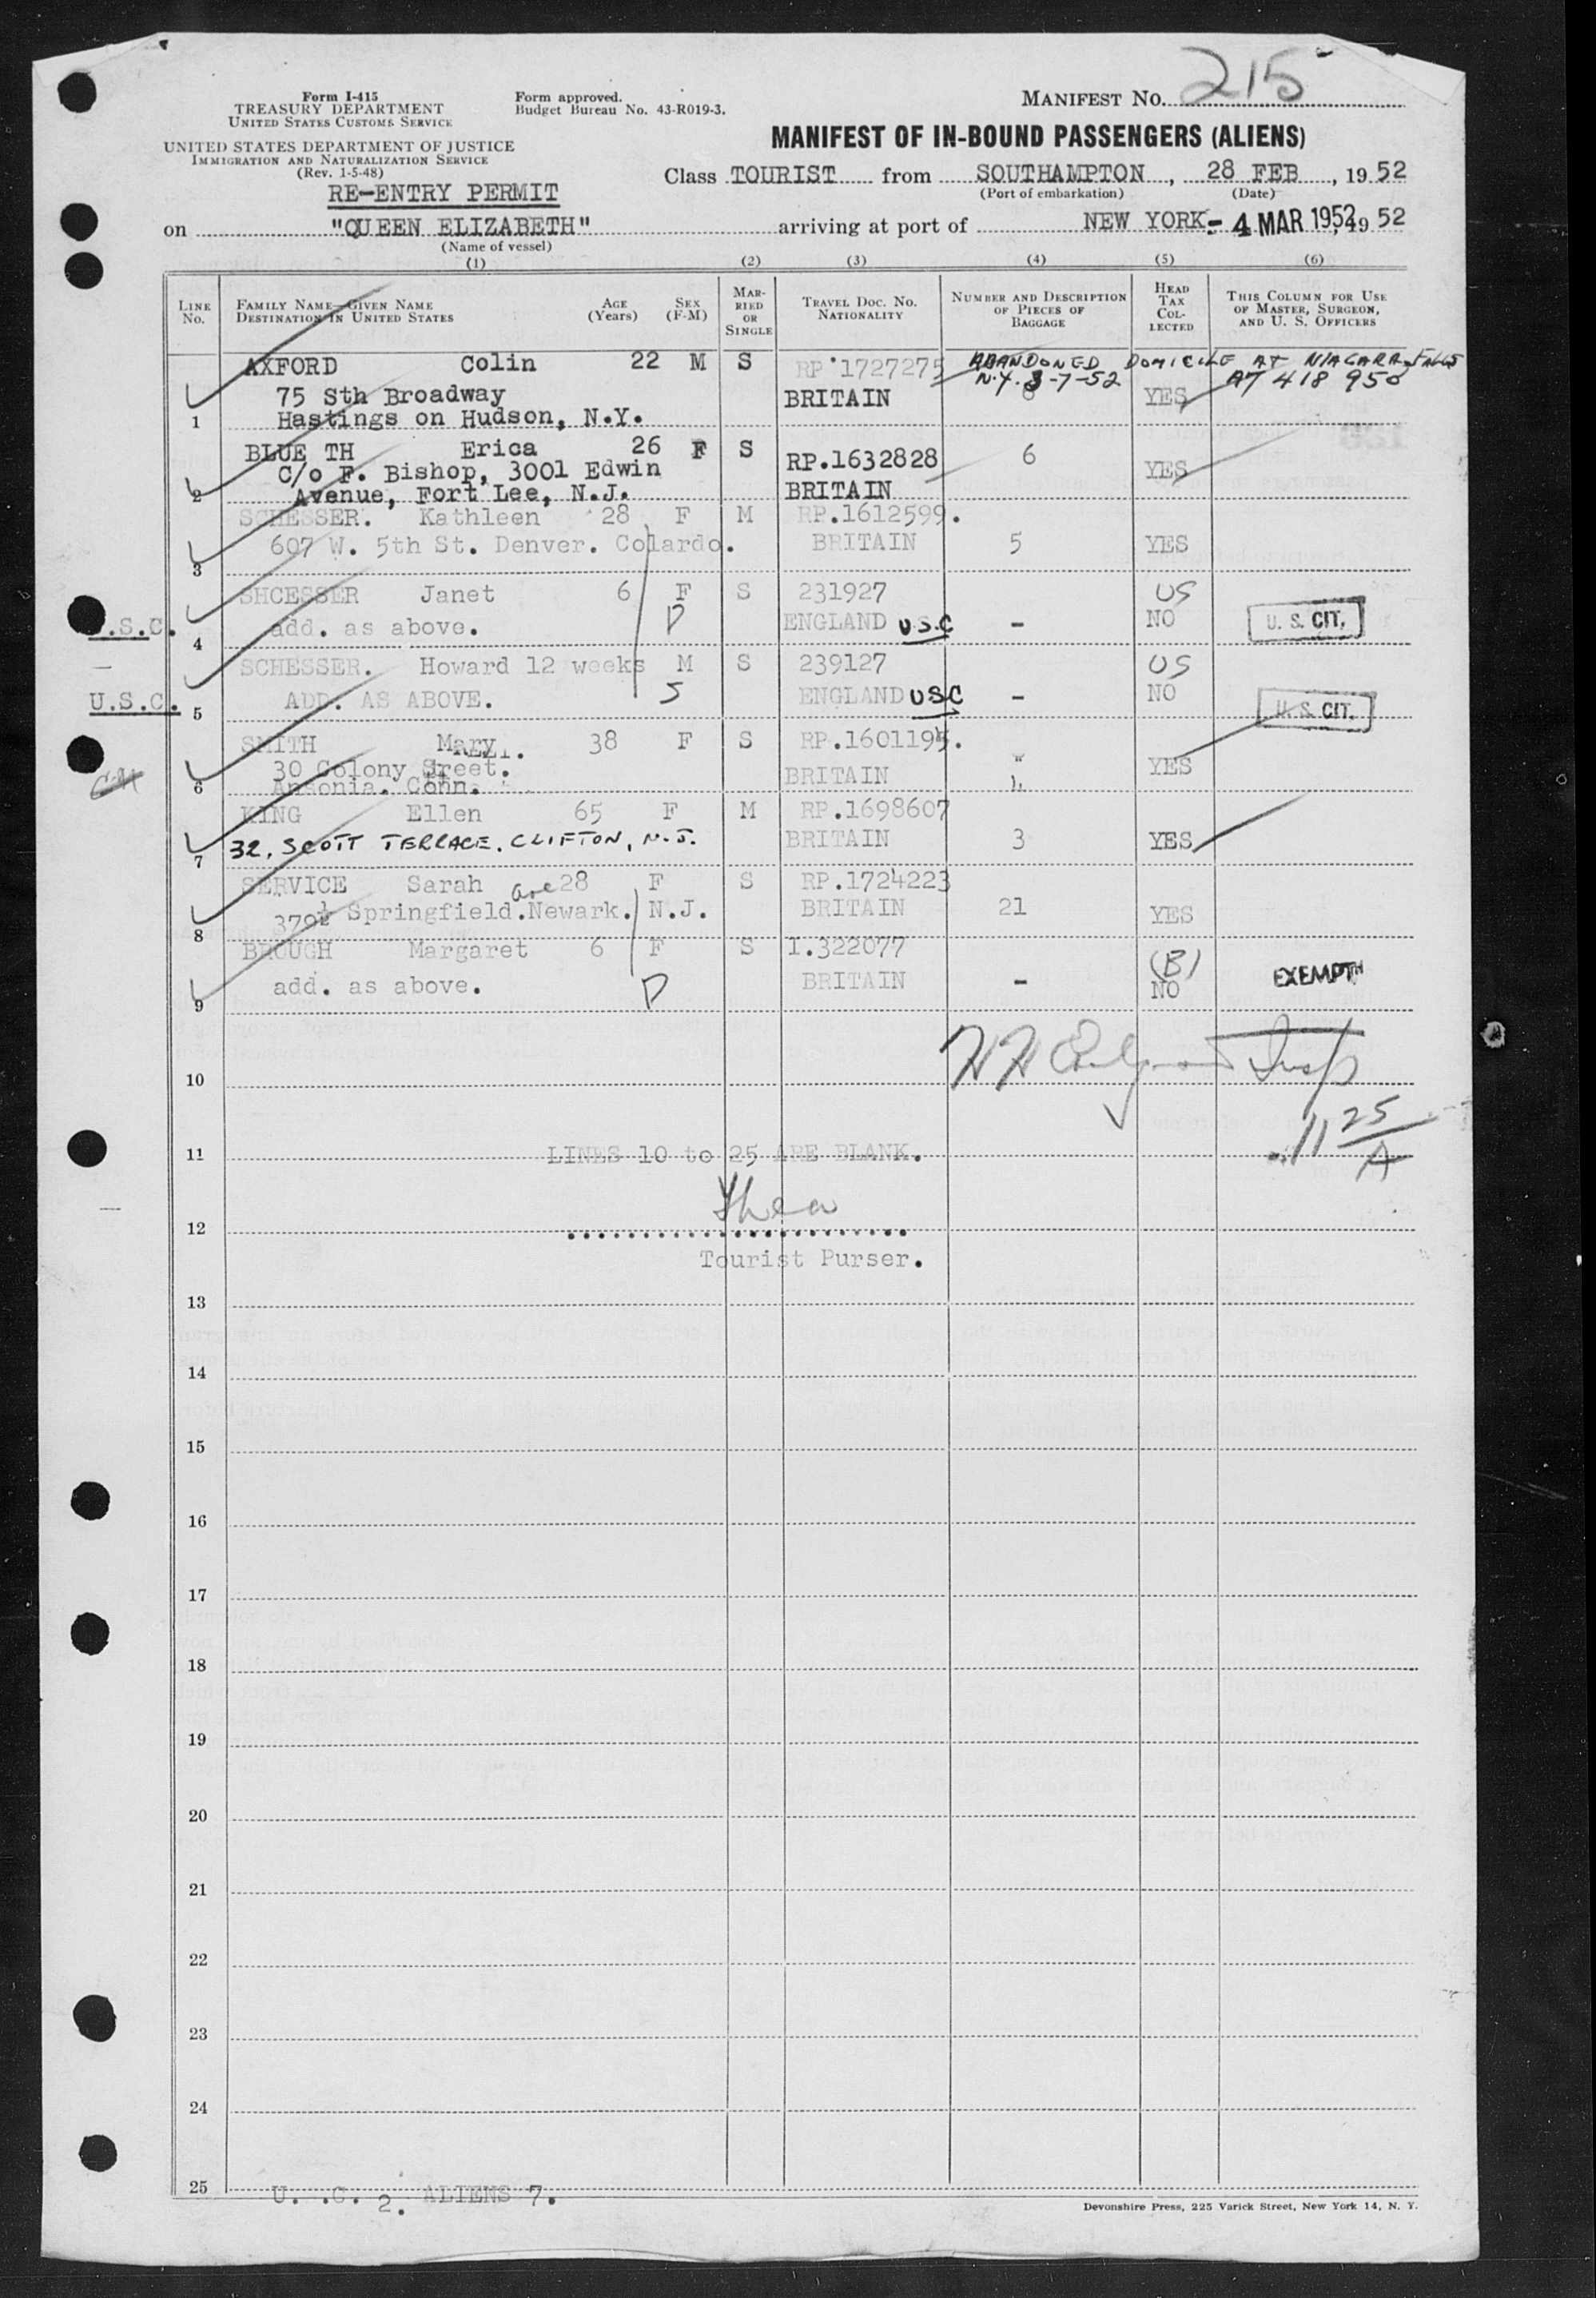 215
Form I-415
TREASURY DEPARTMENT
UNITED STATES CUSTOMS SERVICE
Form approved.
Budget Bureau No. 43-R019-3.
MANIFEST NO.
UNITED STATES DEPARTMENT OF JUSTICE
IMMIGRATION AND NATURALIZATION SERVICE
(Rev. 1-5-48)
MANIFEST OF IN-BOUND PASSENGERS (ALIENS)
RE-ENTRY PERMIT
Class TOURIST from SOUTHAMPTON, 28 FEB, 19 52
(Port of embarkation) (Date)
on "QUEEN ELIZABETH" arriving at port of NEW YORK - 4 MAR 1952, 19 52
(Name of vessel)
(1) (2) (3) (4) (5) (6)
LINE No.
FAMILY NAME—GIVEN NAME
DESTINATION IN UNITED STATES
AGE (Years)
SEX (F-M)
MARRIED OR SINGLE
TRAVEL DOC. NO. NATIONALITY
NUMBER AND DESCRIPTION OF PIECES OF BAGGAGE
HEAD TAX COLLECTED
THIS COLUMN FOR USE OF MASTER, SURGEON, AND U. S. OFFICERS
AXFORD Colin 22 M S RP 1727275 ABANDONED DOMICILE AT NIAGARA FALLS
N.Y. 3-7-52 AT 418 950
75 Sth Broadway BRITAIN YES
1 Hastings on Hudson, N.Y.
BLUE TH Erica 26 F S RP.1632828 6 YES
C/o F. Bishop, 3001 Edwin
2 Avenue, Fort Lee, N.J. BRITAIN
SCHESSER. Kathleen 28 F M RP.1612599.
607 W. 5th St. Denver. Colardo. BRITAIN 5 YES
3
SHCESSER Janet 6 F S 231927 US
U.S.C. add. as above. D ENGLAND U.S.C - NO U. S. CIT.
4
SCHESSER. Howard 12 weeks M S 239127 US
U.S.C. 5 ADD. AS ABOVE. S ENGLAND USC - NO U. S. CIT.
SMITH Mary 38 F S RP.1601195.
30 Colony Street. BRITAIN YES
6 Ansonia. Conn.
KING Ellen 65 F M RP.1698607
7 32, SCOTT TERRACE, CLIFTON, N.J. BRITAIN 3 YES
SERVICE Sarah 28 F S RP.1724223
379½ Springfield. Ave Newark. N.J. BRITAIN 21 YES
8
BROUGH Margaret 6 F S I.322077 (B)
9 add. as above. D BRITAIN - NO EXEMPT
10
11 LINES 10 to 25 ARE BLANK. 11 25/A
12
Tourist Purser.
13
14
15
16
17
18
19
20
21
22
23
24
25 U. .C. 2. ALIENS 7.
Devonshire Press, 225 Varick Street, New York 14, N. Y.